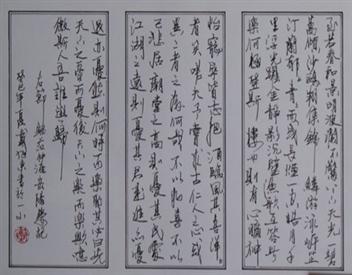 至若春和景明波瀾不驚上下天光一碧
萬頃沙鷗翔集錦鱗游泳岸芷
汀蘭郁郁青青或長煙一空皓月千
里浮光躍金静影沉璧漁歌互答此
樂何極登斯樓也則有心曠神
怡寵辱皆忘把酒臨風其喜洋洋
者矣嗟夫予嘗求古仁人之心或
異二者之為何哉不以物喜不以
己悲居廟堂之高則憂其民處
江湖之遠則憂其君是進亦憂
退亦憂然則何時而樂耶其必曰先
天下之憂而憂後天下之樂而樂歟噫
微斯人吾誰與歸
右節 范仲淹岳陽樓記
癸巳年夏戴 書於一小